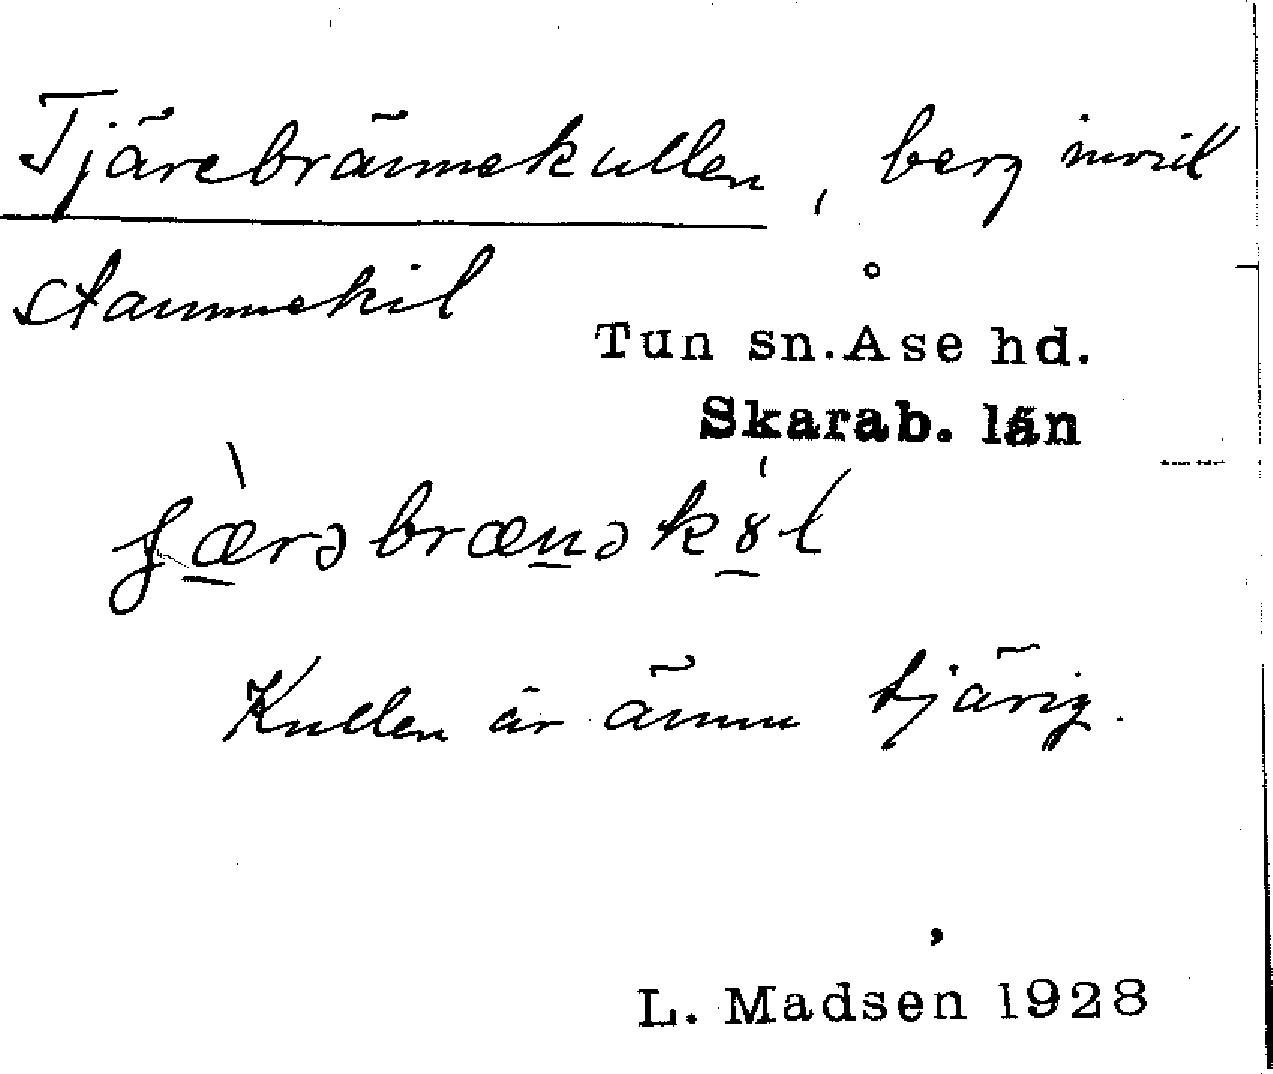 Tjärebrännekullen, berg invid
stannekil
Tun sn. Åse hd.
Skarab. län
Kullen är ännu tjärig.
L. Madsen 1928